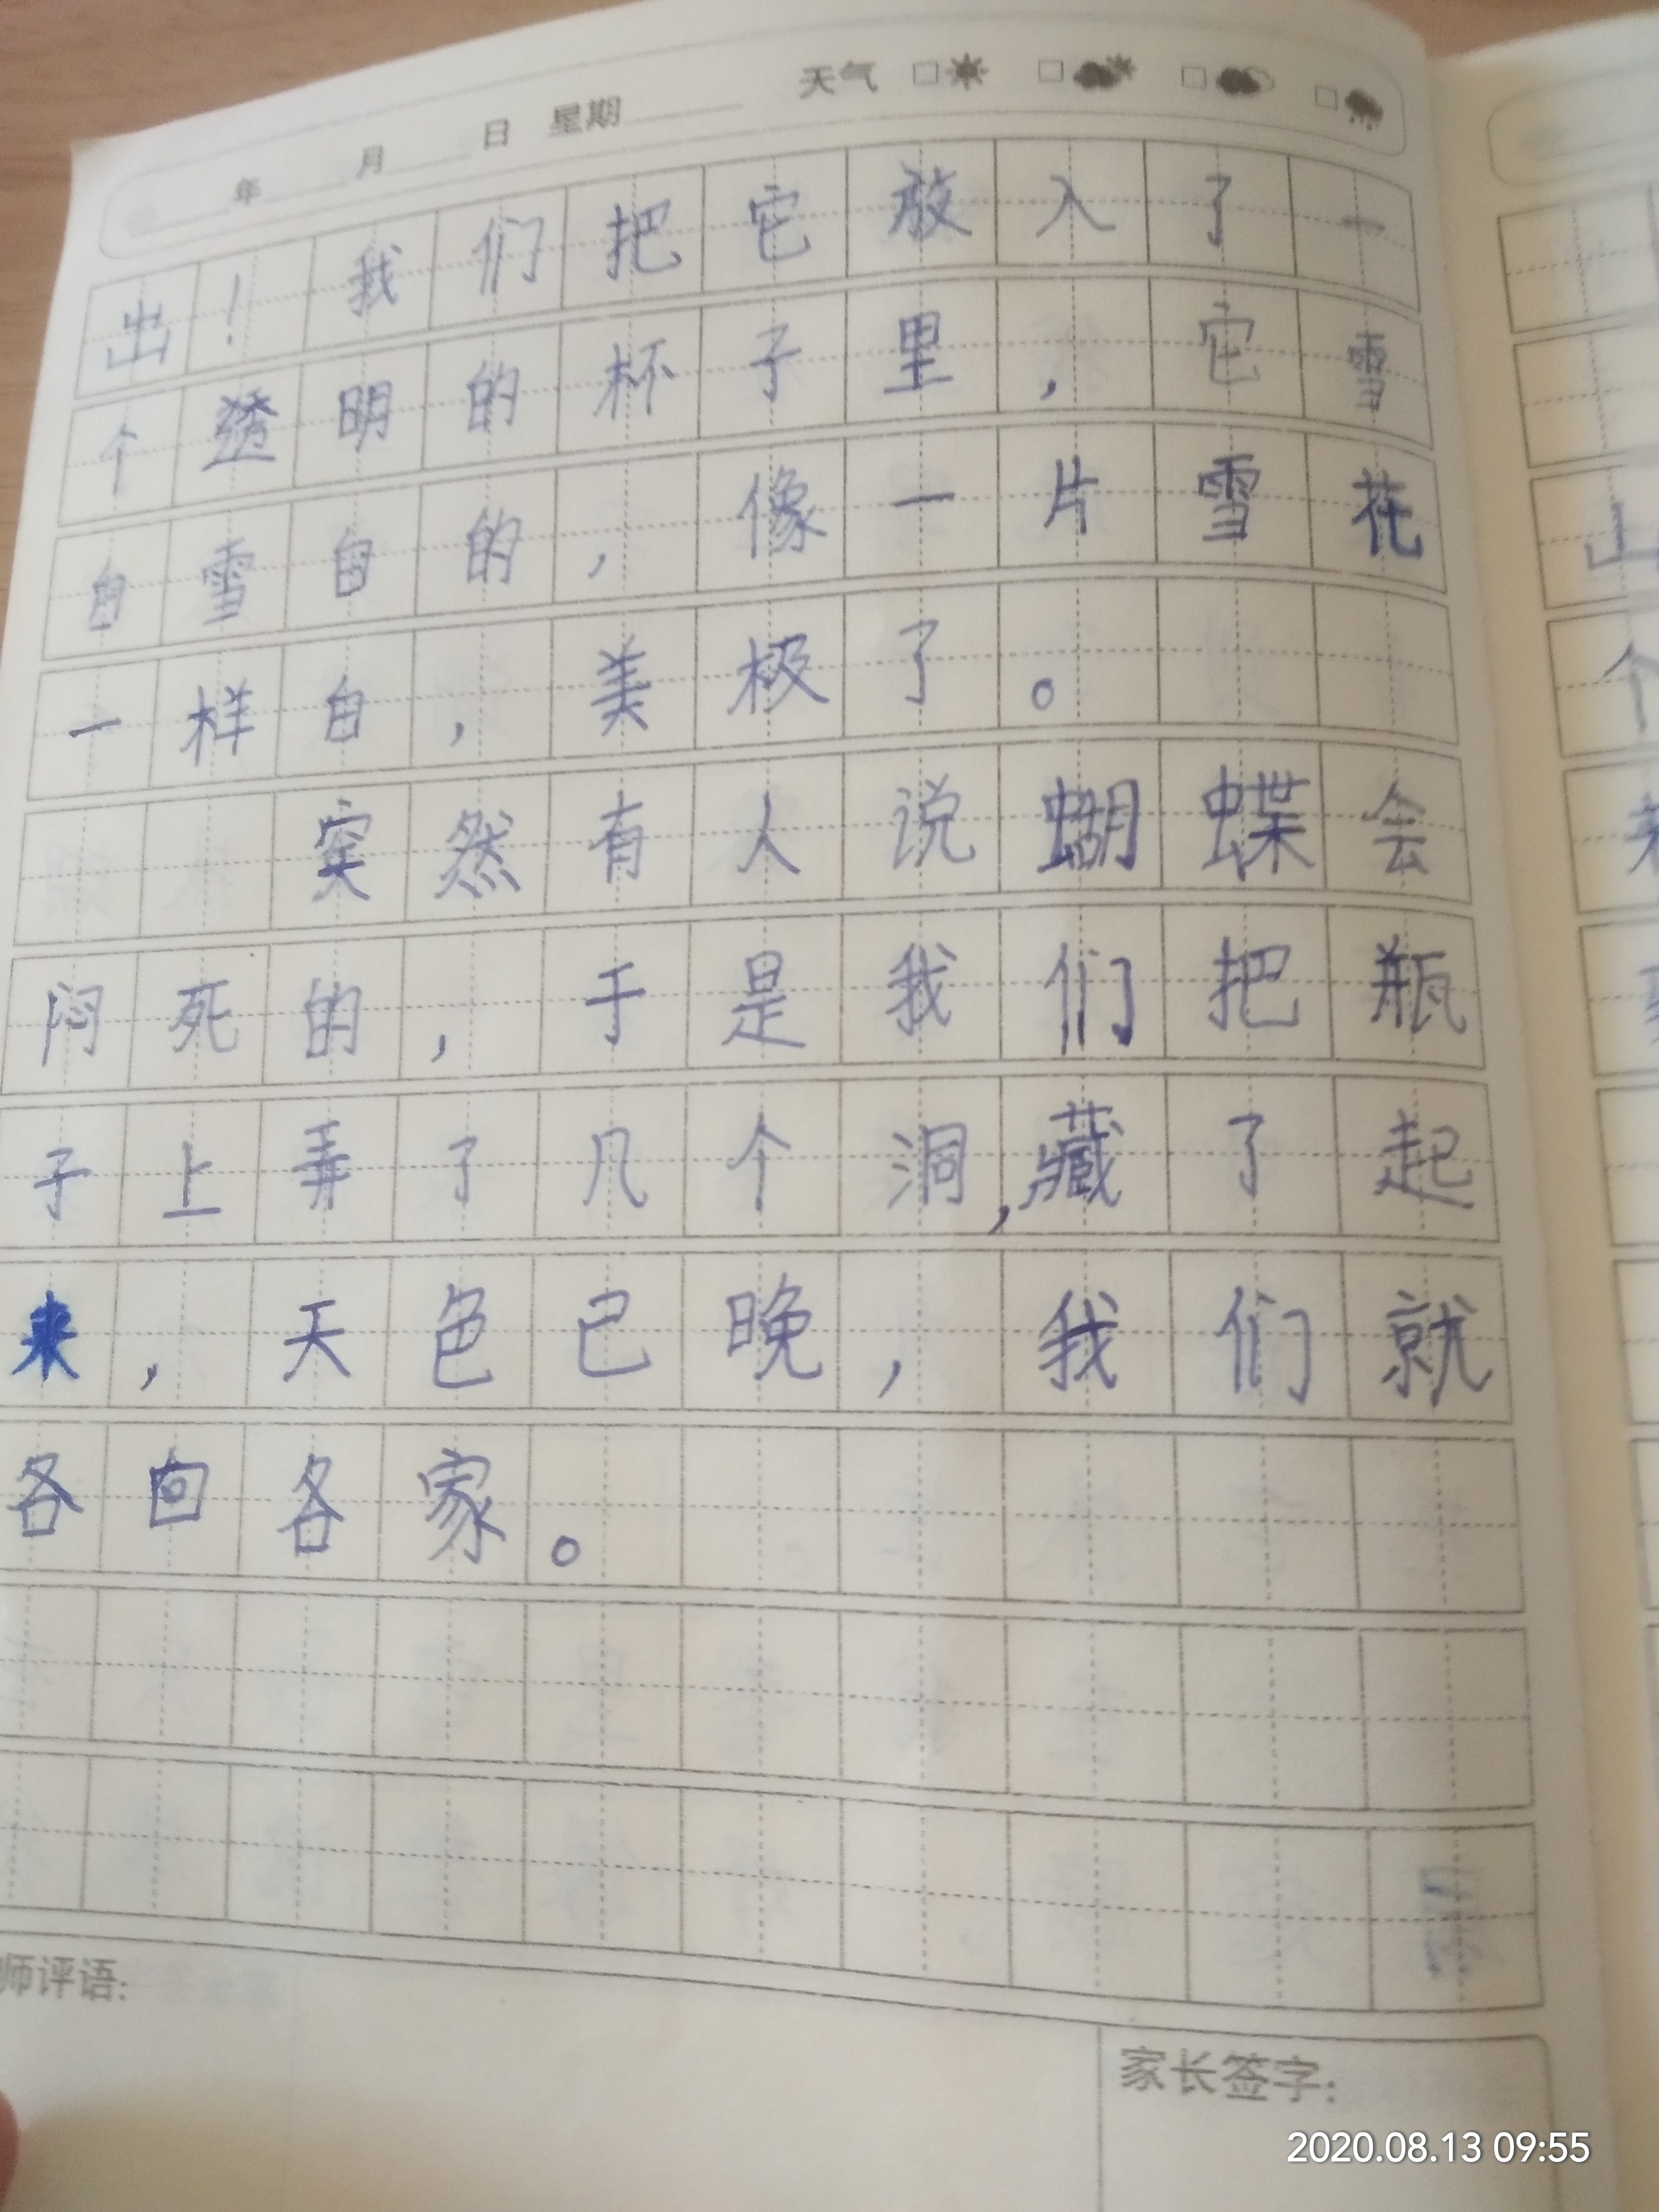 年 月 日 星期 天气
出！我们把它放入了一
个透明的杯子里，它雪
白雪白的，像一片雪花
一样白，美极了。
突然有人说蝴蝶会
闷死的，于是我们把瓶
子上弄了几个洞，藏了起
来，天色已晚，我们就
各回各家。
师评语：
家长签字：
山
个
2020.08.13 09:55